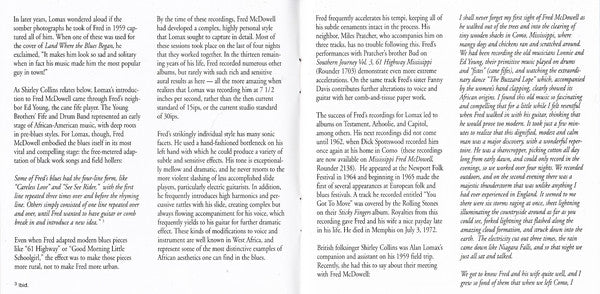 In later years, Lomax wondered aloud if the
somber photographs he took of Fred in 1959 cap-
tured all of him. When one of these was used for
the cover of Land Where the Blues Began, he
exclaimed, "It makes him look so sad and solitary
when in fact his music made him the most popular
guy in town!"
As Shirley Collins relates below, Lomax's introduc-
tion to Fred McDowell came through Fred's neigh-
bor Ed Young, the cane fife player. The Young
Brothers' Fife and Drum Band represented an early
stage of African-American music, with deep roots
in pre-blues styles. For Lomax, though, Fred
McDowell embodied the blues itself in its most
vital and compelling stage: the free-metered adap-
tation of black work songs and field hollers:
Some of Fred's blues had the four-line form, like
"Careless Love" and "See See Rider," with the first
line repeated three times over and before the rhyming
line. Others simply consisted of one line repeated over
and over, until Fred wanted to have guitar or comb
break in and introduce a new idea." 3
Even when Fred adapted modern blues pieces
like "61 Highway" or "Good Morning Little
Schoolgirl," the effect was to make those pieces
more rural, not to make Fred more urban.
3 ibid.
By the time of these recordings, Fred McDowell
had developed a complex, highly personal style
that Lomax sought to capture in detail. Most of
these sessions took place on the last of four nights
that they worked together. In the thirteen remain-
ing years of his life, Fred recorded numerous other
albums, but rarely with such rich and sensitive
sound results as here — all the more amazing when
realizes that Lomax was recording him at 7 1/2
inches per second, rather than the then current
standard of 15ips, or the current studio standard
of 30ips.
Fred's strikingly individual style has many sonic
facets. He used a hand-fashioned bottleneck on his
left hand with which he could produce a variety of
subtle and sensitive effects. His tone is exception-
ally mellow and dramatic, and he never resorts to the
more violent slashing of less accomplished slide
players, particularly electric guitarists. In addition,
he frequently introduces high harmonics and per-
cussive rattles with his slide, creating complex but
always flowing accompaniment for his voice, which
frequently yields to his guitar for further dramatic
effect. These kinds of modifications to voice and
instrument are well known in West Africa, and
represent some of the most distinctive examples of
African aesthetics one can find in the blues.
Fred frequently accelerates his tempi, keeping all of
his subtle ornaments intact in the process. His
neighbor, Miles Pratcher, who accompanies him on
three tracks, has no trouble following this. Fred's
performances with Pratcher's brother Bud on
Southern Journey Vol. 3, 61 Highway Mississippi
(Rounder 1703) demonstrate even more extreme
accelerations. On the same track Fred's sister Fanny
Davis contributes further alterations to voice and
guitar with her comb-and-tissue paper work.
The success of Fred's recordings for Lomax led to
albums on Testament, Arhoolie, and Capitol,
among others. His next recordings did not come
until 1962, when Dick Spottswood recorded him
once again at his home in Como (these recordings
are now available on Mississippi Fred McDowell,
Rounder 2138). He appeared at the Newport Folk
Festival in 1964 and beginning in 1965 made the
first of several appearances at European folk and
blues festivals. A track he recorded entitled "You
Got To Move" was covered by the Rolling Stones
on their Sticky Fingers album. Royalties from this
recording gave Fred and his wife a nice payday late
in his life. He died in Memphis on July 3, 1972.
British folksinger Shirley Collins was Alan Lomax's
companion and assistant on his 1959 field trip.
Recently, she had this to say about their meeting
with Fred McDowell:
I shall never forget my first sight of Fred McDowell as
he walked out of the trees and into the clearing of
tiny wooden shacks in Como, Mississippi, where
mangy dogs and chickens ran and scratched around.
We had been recording the old musicians Lonnie and
Ed Young, their primitive music played on drums
and "fists" (cane fifes), and watching the extraordi-
nary dance "The Buzzard Lope" which, accompanied
by the women's hand clapping, clearly showed its
African origins. I found this old music so fascinating
and compelling that for a little while I felt resentful
when Fred walked in with his guitar, thinking that
he would prove too modern. It took just a few min-
utes to realize that this dignified, modest and calm
man was a major discovery, with a wonderful reper-
toire. He was a sharecropper, picking cotton all day
long from early dawn, and could only record in the
evenings, so we worked over four nights. We recorded
outdoors, and on the second evening there was a
majestic thunderstorm that was unlike anything I
had ever experienced in England. It seemed to me
there were six storms raging at once, sheet lightning
illuminating the countryside around as far as you
could see, forked lightning that flashed along the
amazing cloud formation, and struck down into the
earth. The electricity cut out three times, the rain
came down like Niagara Falls, and so that night we
just all sat and talked.
We got to know Fred and his wife quite well, and I
grew so fond of them that when we left Como, I